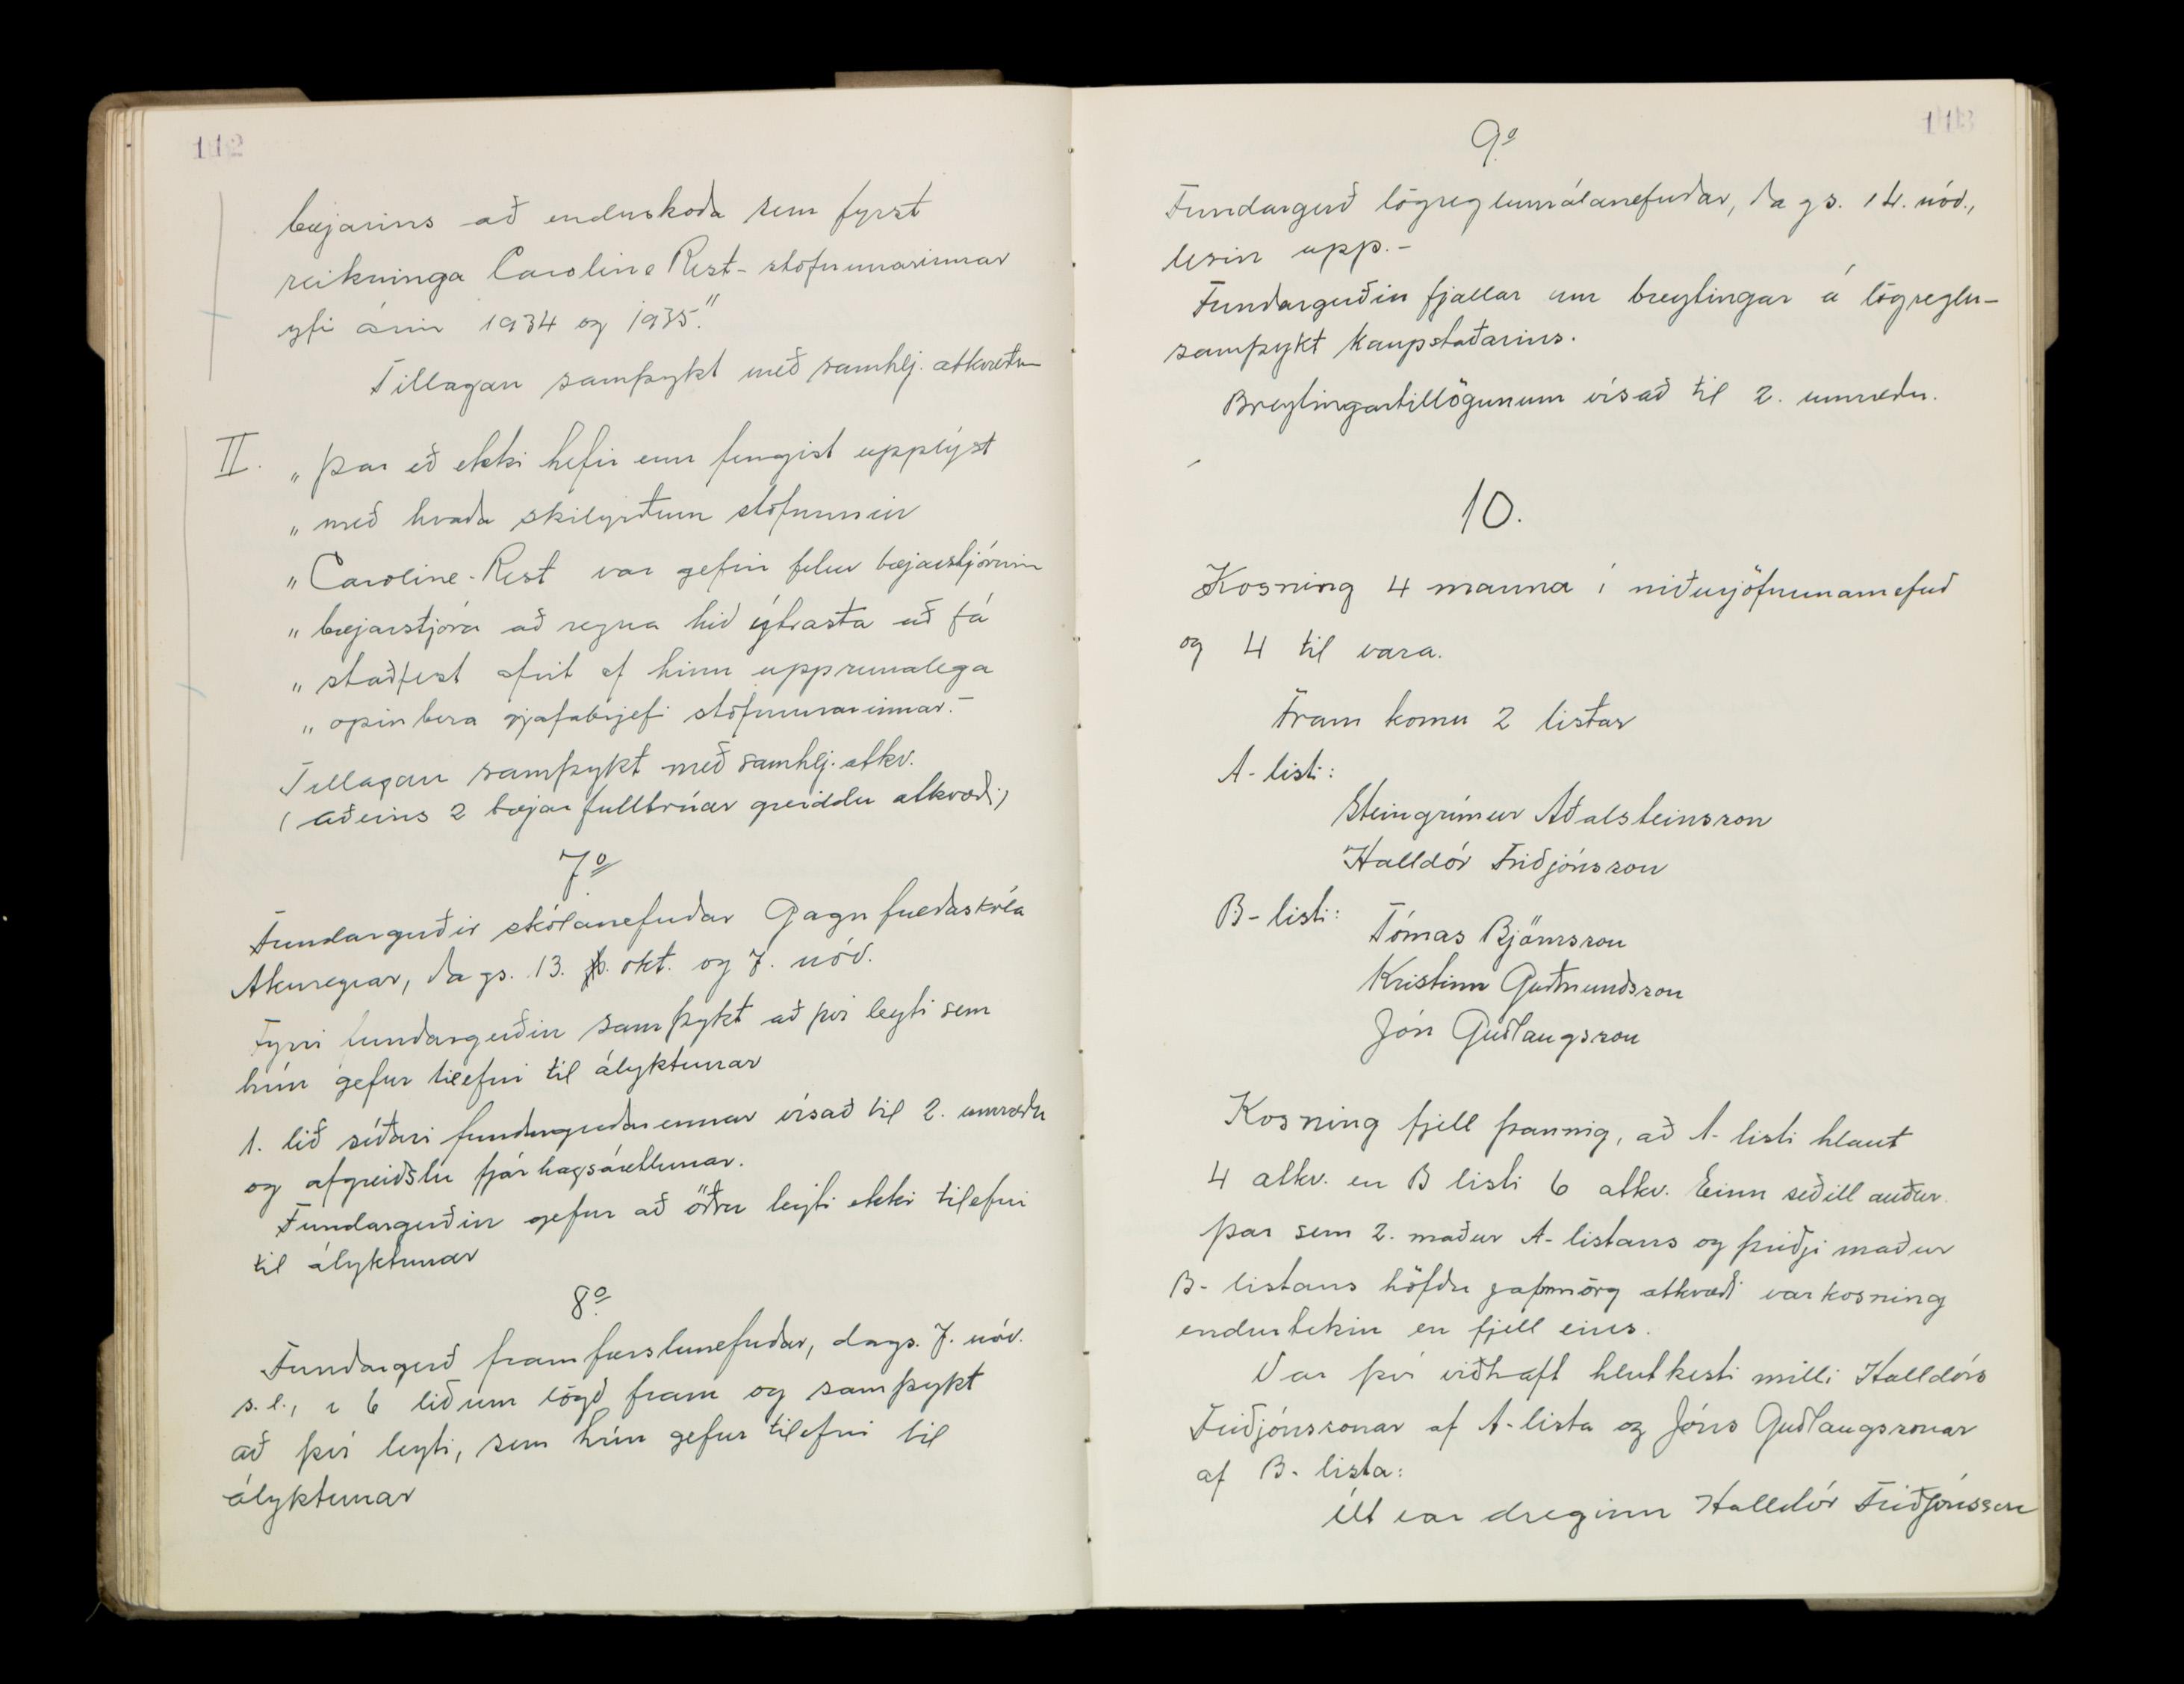 112
bæjarins að endurskoða sem fyrst
reikninga Caroline Rest-stofnunarinnar
yfir árin 1934 og 1935."
Tillagan samþykt með samhlj. atkvæðum
II. „Þar eð ekki hefir enn fengist upplýst
„með hvaða skilyrðum stofnunin
„Caroline-Rest var gefin felur bæjarstjórnin
„bæjarstjóra að reyna hið ýtrasta að fá
„staðfest afrit af hinu upprunalega
„opinbera gjafabrjefi stofnunarinnar.-
Tillagan samþykt með samhlj. atkv.
(aðeins 2 bæjarfulltrúar greiddu atkvæði)
7º
Fundargerðir skólanefndar Gagnfræðaskóla
Akureyrar, dags. 13. okt. og 7. nóv.
Fyrri fundargerðin samþykt að því leyti sem
hún gefur tilefni til ályktunar
1. lið síðari fundargerðarinnar vísað til 2. umræðu
og afgreiðslu fjárhagsáætlunar.
Fundargerðin gefur að öðru leyti ekki tilefni
til ályktunar
8º
Fundargerð framfærslunefndar, dags. 7. nóv.
s.l., í 6 liðum lögð fram og samþykt
að því leyti, sem hún gefur tilefni til
ályktunar
113
9º
Fundargerð lögreglumálanefndar, dags. 14. nóv.,
lesin upp.-
Fundargerðin fjallar um breytingar á lögreglu-
samþykt kaupstaðarins.
Breytingartillögunum vísað til 2. umræðu.
10.
Kosning 4 manna í niðurjöfnunarnefnd
og 4 til vara.
Fram komu 2 listar
A-listi:
Steingrímur Aðalsteinsson
Halldór Friðjónsson
B-listi:
Tómas Björnsson
Kristinn Guðmundsson
Jón Guðlaugsson
Kosning fjell þannig, að A-listi hlaut
4 atkv. en B listi 6 atkv. Einn seðill auður.
Þar sem 2. maður A-listans og þriðji maður
B-listans höfðu jafnmörg atkvæði var kosning
endurtekin en fjell eins.
Var því viðhaft hlutkesti milli Halldórs
Friðjónssonar af A-lista og Jóns Guðlaugssonar
af B-lista:
Út var dreginn Halldór Friðjónsson